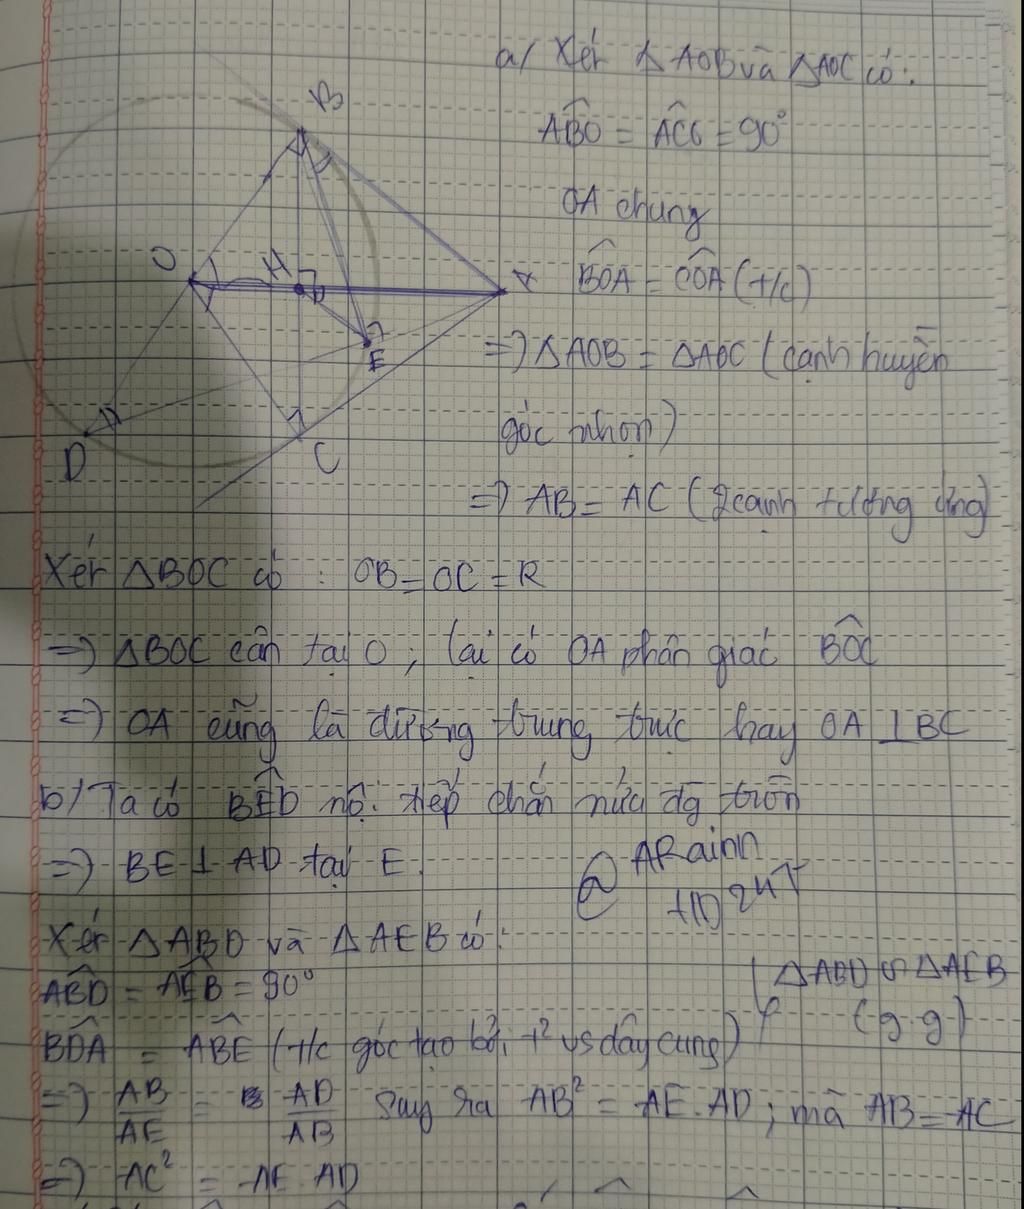 a/ Xét ΔAOB và ΔAOC có:
B
ABO = ACO = 90°
OA chung
O
H
A
BOA = COA (t/c)
E
=> ΔAOB = ΔAOC (cạnh huyền
góc nhọn)
D
C
=> AB = AC (2 cạnh tương ứng)
Xét ΔBOC có : OB = OC = R
=> ΔBOC cân tại O, lại có OA phân giác BOC
=> OA cũng là đường trung trực hay OA ⊥ BC
b/ Ta có BED nội tiếp chắn nửa đg tròn
=> BE ⊥ AD tại E.
@
Xét ΔABD và ΔAEB có:
ABD = AEB = 90°
ΔABD ∽ ΔAEB
(g.g)
BDA = ABE (t/c góc tạo bởi t² vs dây cung)
=> AB/AE = AD/AB Suy ra AB² = AE.AD; mà AB = AC
=> AC² = AE.AD